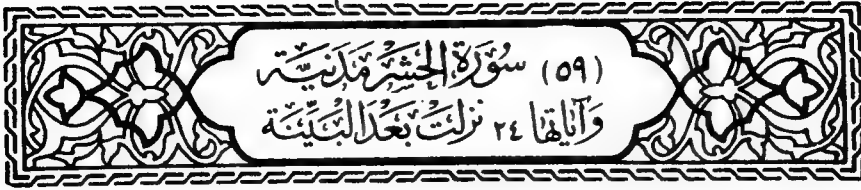 (٥٩) سُورَةُ الحَشْرِ مَدَنِيَّة
وَآيَاتُهَا ٢٤ نَزَلَتْ بَعْدَ البَيِّنَة